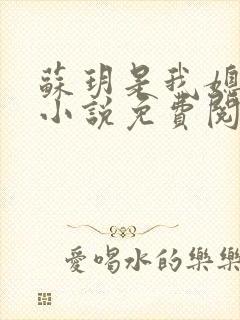 蘇玥是我媳
小說免費閱
愛喝水的樂樂